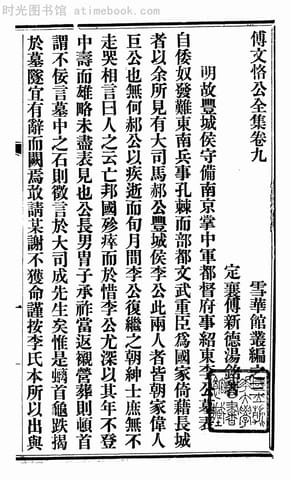 时光图书馆 - book.ac
傅文恪公全集卷九
雪華館叢編之
定襄傅新德湯銘著
明故豐城侯守備南京掌中軍都督府事紹東李公墓表
自倭奴發難東南兵事孔棘而部都文武重臣為國家倚藉長城
者以余所見有大司馬郝公豐城侯李公此兩人者皆朝家偉人
巨公也無何郝公以疾逝而旬月間李公復繼之朝紳士庶無不
走哭相言曰人之云亡邦國殄瘁而於惜李公尤深以其年不登
中壽而雄略未盡表見也公長男冑子承祚當返襯營葬則頓首
謂不佞言墓中之石則徵言於大司成先生矣惟是螭首龜趺揭
於墓隧宜有辭而闕焉敢請某謝不獲命謹按李氏本所以出與